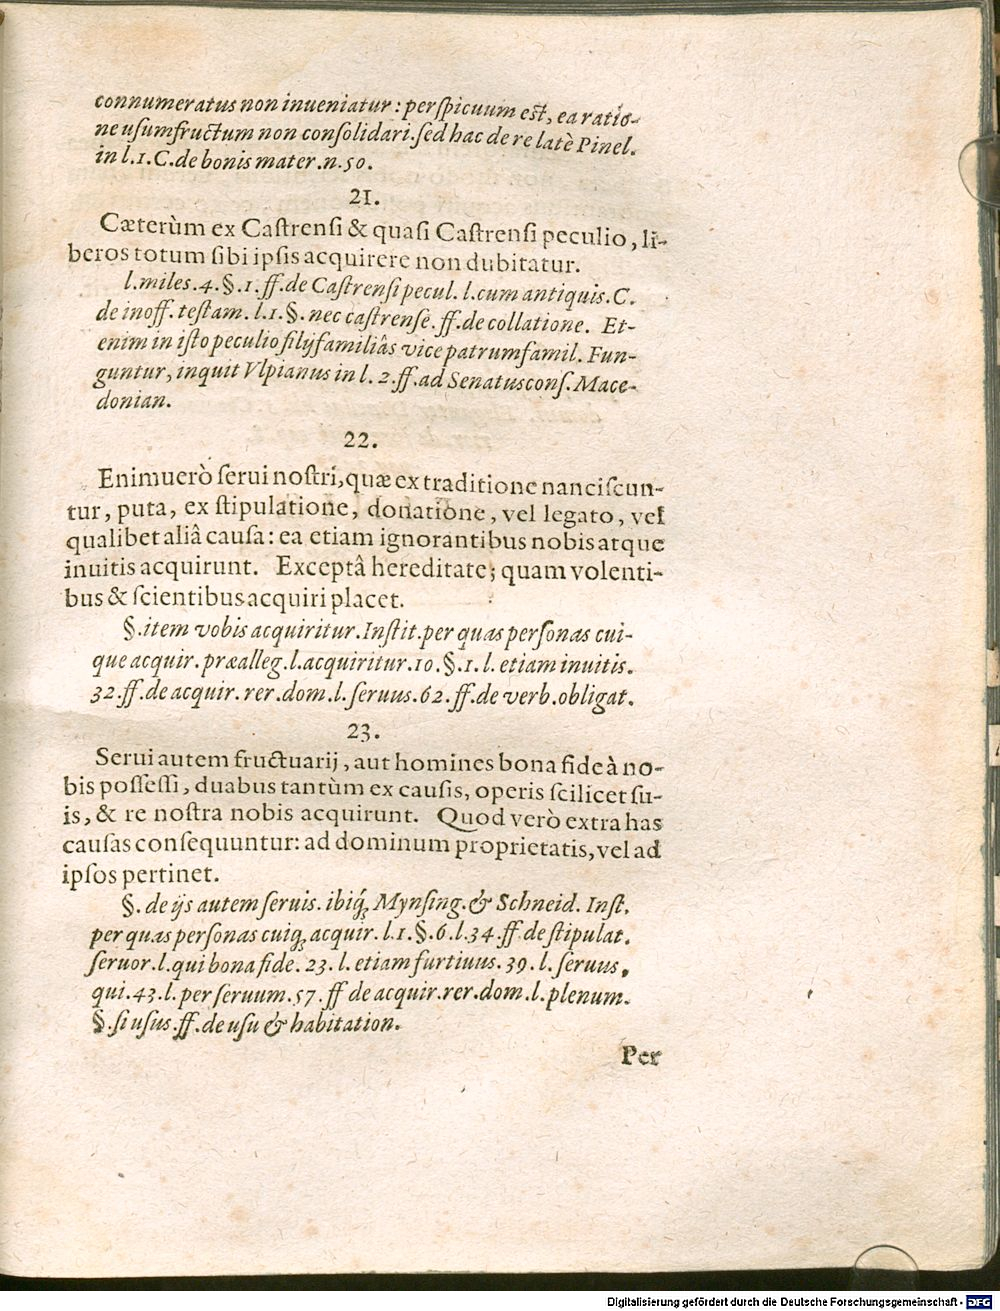 connumeratus non inueniatur: perspicuum est, ea ratio-
ne usumfructum non consolidari. sed hac de re latè Pinel.
in l.1. C. de bonis mater. n. 50.
21.
Cæterùm ex Castrensi & quasi Castrensi peculio, li-
beros totum sibi ipsis acquirere non dubitatur.
l. miles. 4. §. 1. ff. de Castrensi pecul. l. cum antiquis. C.
de inoff. testam. l. 1. §. nec castrense. ff. de collatione. Et-
enim in isto peculio filijfamiliâs vice patrumfamil. Fun-
guntur, inquit Vlpianus in l. 2. ff. ad Senatuscons. Mace-
donian.
22.
Enimuerò serui nostri, quæ ex traditione nanciscun-
tur, puta, ex stipulatione, donatione, vel legato, vel
qualibet aliâ causa: ea etiam ignorantibus nobis atque
inuitis acquirunt. Exceptâ hereditate; quam volenti-
bus & scientibus acquiri placet.
§. item vobis acquiritur. Instit. per quas personas cui-
que acquir. præalleg. l. acquiritur. 10. §. 1. l. etiam inuitis.
32. ff. de acquir. rer. dom. l. seruus. 62. ff. de verb. obligat.
23.
Serui autem fructuarij, aut homines bona fide à no-
bis possessi, duabus tantùm ex causis, operis scilicet su-
is, & re nostra nobis acquirunt. Quod verò extra has
causas consequuntur: ad dominum proprietatis, vel ad
ipsos pertinet.
§. de ijs autem seruis. ibiq́; Mynsing. & Schneid. Inst.
per quas personas cuiq; acquir. l. 1. §. 6. l. 34. ff. de stipulat.
seruor. l. qui bona fide. 23. l. etiam furtiuus. 39. l. seruus,
qui. 43. l. per seruum. 57. ff de acquir. rer. dom. l. plenum.
§. si usus. ff. de usu & habitation.
Per
Digitalisierung gefördert durch die Deutsche Forschungsgemeinschaft - DFG